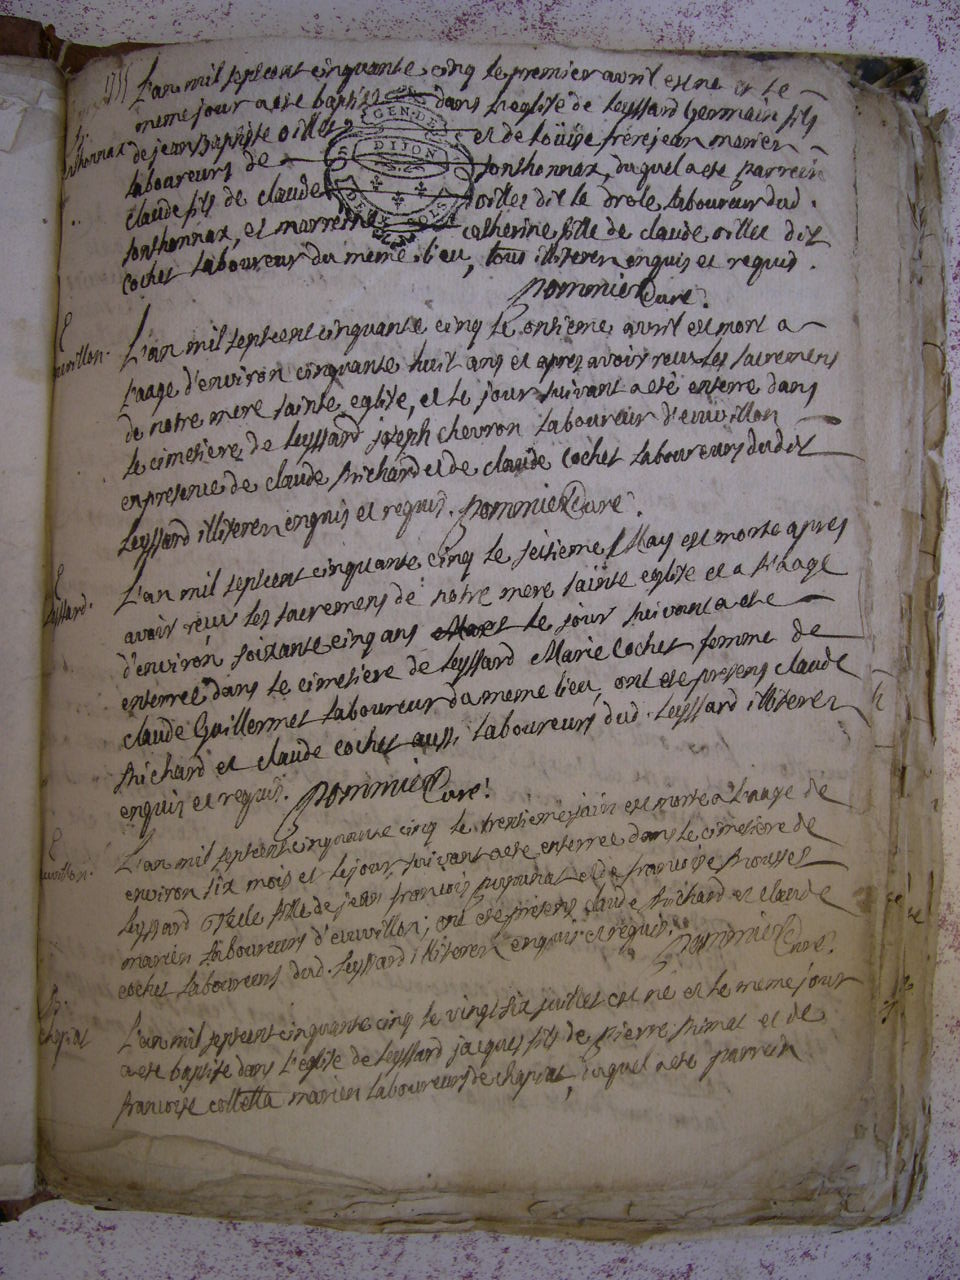 1755
L'an mil septcent cinquante cinq le premier avril est né et le
meme jour a eté baptisé dans l'eglise de leyssard Germain fils
de jean Baptiste oillet et de loüise frerejean mariez
laboureurs de sonthonnax, duquel a eté parrein
claude fils de claude oillet dit le drole laboureur dud.
sonthonnax, et marreine catherine fille de claude oillet dit
cochet laboureur du meme lieu, tous illiterez enquis et requis.
pommier Curé.
GEN. DE
DIJON
DEUX SOLS
L'an mil septcent cinquante cinq le onsieme avril est mort a
l'aage d'environ cinquante huit ans et apres avoir reçu les sacremens
de notre mere sainte eglise, et le jour suivant a eté enterré dans
le cimetiere de leyssard joseph chevron laboureur d'euvillon
en presence de claude Richard et de claude Cochet laboureurs dudit
Leyssard illiterez enquis et requis. pommier Curé.
Leyssard.
L'an mil septcent cinquante cinq le seitieme May est morte apres
avoir reçu les sacremens de notre mere sainte eglise et a l'aage
d'environ soixante cinq ans et le jour suivant a eté
enterrée dans le cimetiere de leyssard Marie Cochet femme de
claude Guillermet laboureur du meme lieu, ont eté presens claude
Richard et claude cochet aussi laboureurs dud. Leyssard illiterez
enquis et requis. pommier Curé.
L'an mil septcent cinquante cinq le trentieme juin est morte a l'aage de
environ six mois et le jour suivant a eté enterrée dans le cimetiere de
Leyssard fille de jean françois et de françoise Rousset
mariez laboureurs d'euvillon; ont eté presens claude Richard et claude
cochet laboureurs dud. Leyssard illiterez enquis et requis. pommier Curé.
B.
chapiat
L'an mil septcent cinquante cinq le vingt six juillet est né et le meme jour
a eté baptisé dans l'eglise de leyssard jacques fils de pierre et de
françoise colletta mariez laboureurs de chapiat, duquel a eté parrein